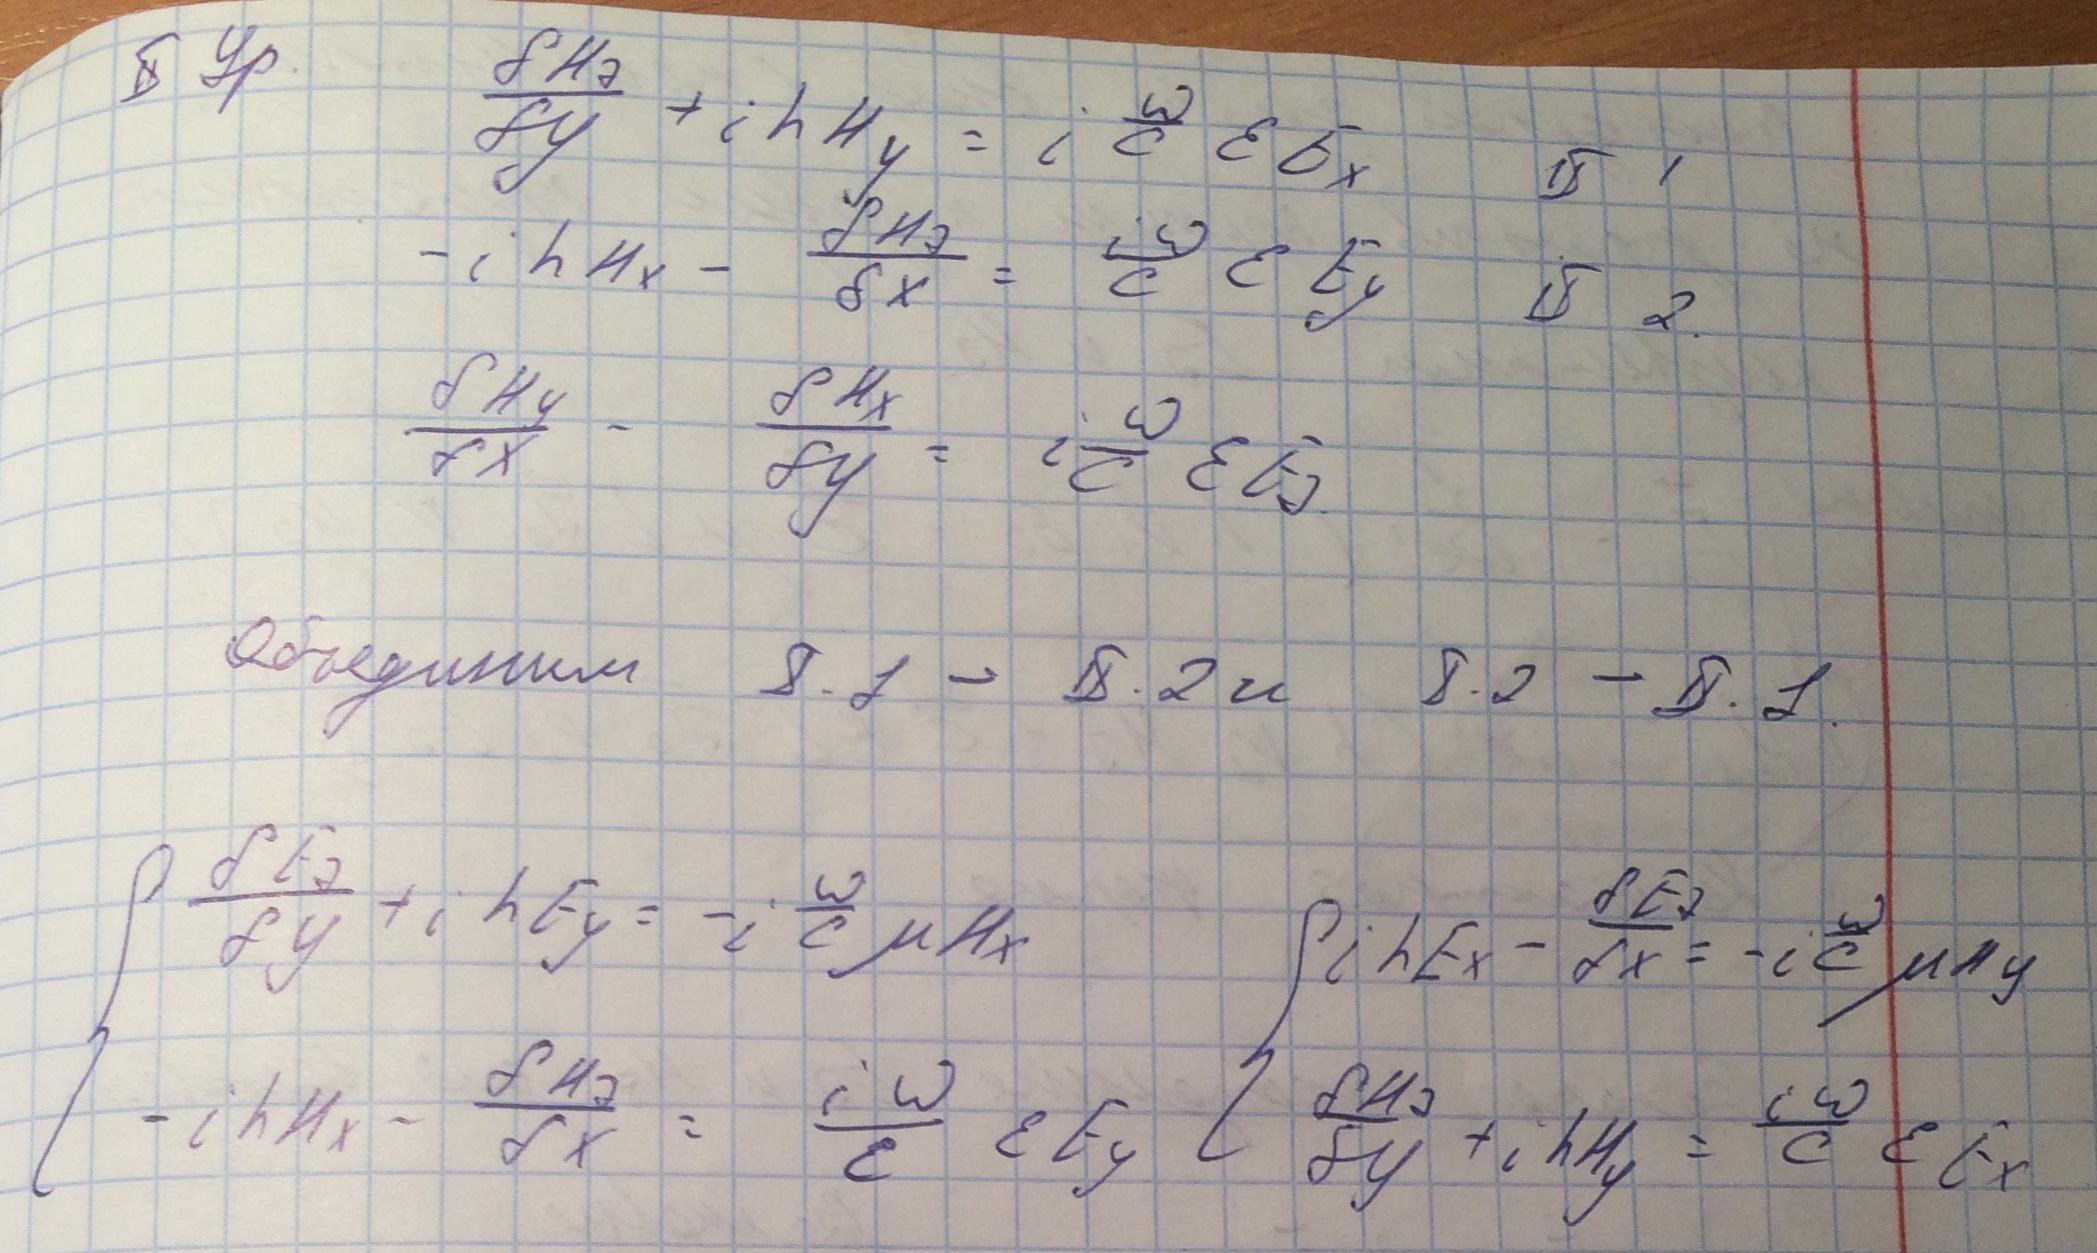 II Ур. δHz/δy + ihHy = i ω/c εEx II 1
-ihHx - δHz/δx = iω/c εEy II 2.
δHy/δx - δHx/δy = i ω/c εEz.
Объединим I.1 – II.2 и I.2 – II.1.
{ δEz/δy + ihEy = -i ω/c μHx { ihEx - δEz/δx = -i ω/c μHy
-ihHx - δHz/δx = iω/ε εEy δHz/δy + ihHy = iω/c εEx